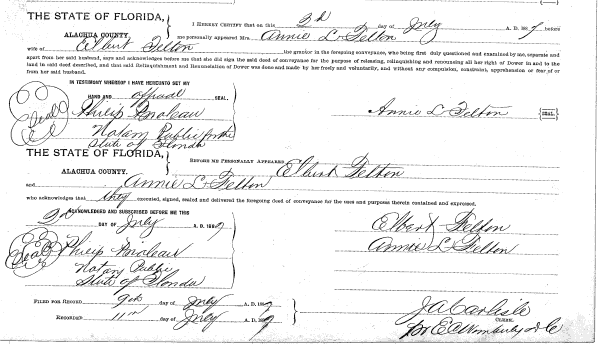 THE STATE OF FLORIDA,
ALACHUA COUNTY.
I HEREBY CERTIFY that on this 2d day of July A. D. 1887, before
me personally appeared Mrs. Annie L. Felton
wife of Elbert Felton the grantor in the foregoing conveyance, who being first duly questioned and examined by me, separate and
apart from her said husband, says and acknowledges before me that she did sign the said deed of conveyance for the purpose of releasing, relinquishing and renouncing all her right of Dower in and to the
land in said deed described, and that said Relinquishment and Renunciation of Dower was done and made by her freely and voluntarily, and without any compulsion, constraint, apprehension or fear of or
from her said husband.
IN TESTIMONY WHEREOF I HAVE HEREUNTO SET MY
HAND AND official SEAL.
(Seal) Philip
Annie L Felton {SEAL}
Notary Public for the
State of Florida
THE STATE OF FLORIDA,
ALACHUA COUNTY.
BEFORE ME PERSONALLY APPEARED Elbert Felton
and Annie L. Felton
who acknowledges that they executed, signed, sealed and delivered the foregoing deed of conveyance for the uses and purposes therein contained and expressed.
ACKNOWLEDGED AND SUBSCRIBED BEFORE ME THIS
2d DAY OF July A. D. 1887
Elbert Felton
Annie L. Felton
(Seal) Philip
Notary Public
State of Florida
FILED FOR RECORD 9th day of July A. D. 1887
RECORDED 11th day of July A. D. 1887
J A Carlisle
CLERK.
pr E C Wimberly D C